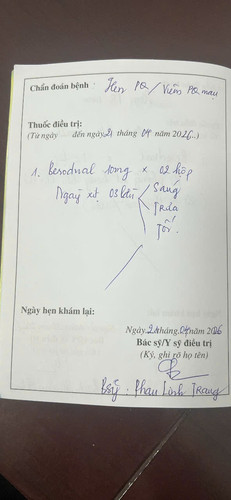 Chẩn đoán bệnh: Hen PQ / Viêm PQ mạn
Thuốc điều trị:
(Từ ngày đến ngày 21 tháng 04 năm 2026..)
1. Berodual 10mg x 02 hộp
Ngày xịt 03 lần Sáng
Trưa
Tối.
Ngày hẹn khám lại:
Ngày 21 tháng 04 năm 2026
Bác sỹ/Y sỹ điều trị
(Ký, ghi rõ họ tên)
Bsỹ. Phan Linh Trang